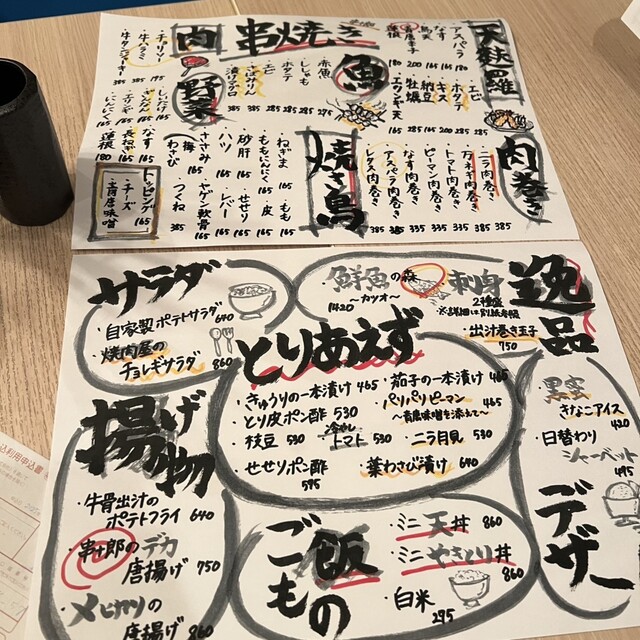 串焼き
天麩羅
アスパラ 180
なす 165
馬天 165
青唐辛子 180
蓮根 180
エビ 285
ホタテ 285
キス 200
納豆 165
牡蠣 285
エリンギ天 165
肉巻き
ニラ肉巻き 385
万ネギ肉巻き 385
トマト肉巻き 335
ピーマン肉巻き 335
なす肉巻き 335
アスパラ肉巻き 385
レタス肉巻き 385
魚
赤魚 285
ししゃも 285
ホタテ 285
エビ 285
焼き鳥
ねぎま 165
もも 165
ももにんにく 165
皮 165
砂肝 165
せせり 165
ハツ 165
レバー 165
ささみ
(梅 わさび)
ヤゲン軟骨 165
つくね
肉
チョリソー 195
牛ハラミ 385
野菜
しいたけ 165
エリンギ 165
にんにく 165
なす 165
長ねぎ 165
蓮根 180
トッピング 165
・チーズ
・青唐味噌
サラダ
・自家製ポテトサラダ 640
・焼肉屋の
チョレギサラダ 860
逸品
・鮮魚の森
~カツオ~
1420
・刺身
2種盛
・出汁巻き玉子
750
とりあえず
・きゅうりの一本漬け 465
・茄子の一本漬け 465
・とり皮ポン酢 530
・パリパリピーマン 465
~青唐味噌を添えて~
・枝豆 530
・冷やしトマト 530
・ニラ月見 530
・せせりポン酢
595
・葉わさび漬け 640
揚げ物
・牛骨出汁の
ポテトフライ 640
・串十郎のデカ
唐揚げ 750
・メヒカリの
唐揚げ 860
ごはんもの
飯
・ミニ天丼 860
・ミニやきとり丼
860
・白米
295
デザー
・黒蜜
きなこアイス
420
・日替わり
シャーベット
495
込利用申込書